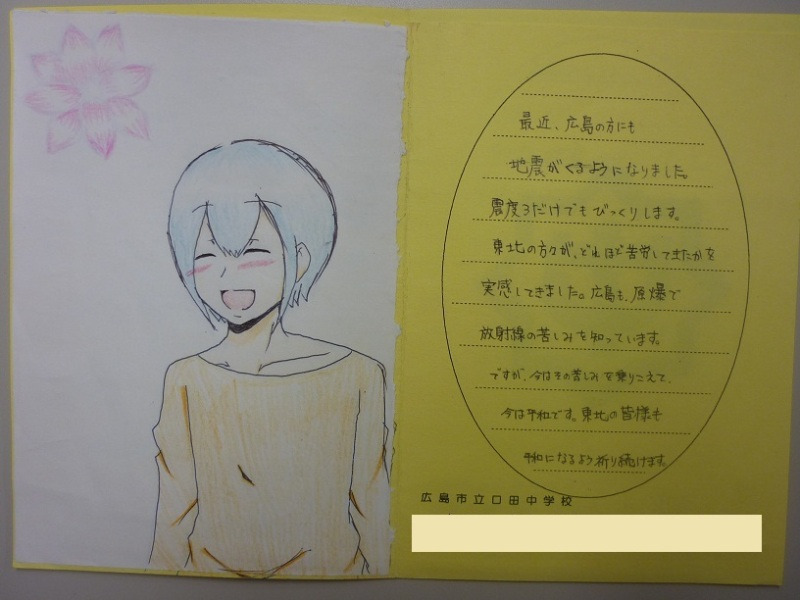 最近、広島の方にも
地震がくるようになりました。
震度3だけでもびっくりします。
東北の方々が、どれほど苦労してきたかを
実感してきました。広島も、原爆で
放射線の苦しみを知っています。
ですが、今はその苦しみを乗りこえて、
今は平和です。東北の皆様も
平和になるよう祈り続けます。
広島市立口田中学校